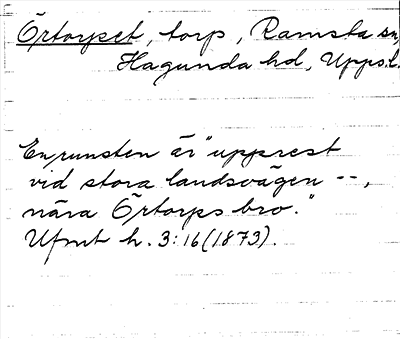 Örtorpet, torp, Ramsta sn,
Hagunda hd, Upps.l.
En runsten är "upprest
vid stora landsvägen --,
nära Örtorps bro."
Ufmt h. 3:16 (1873).